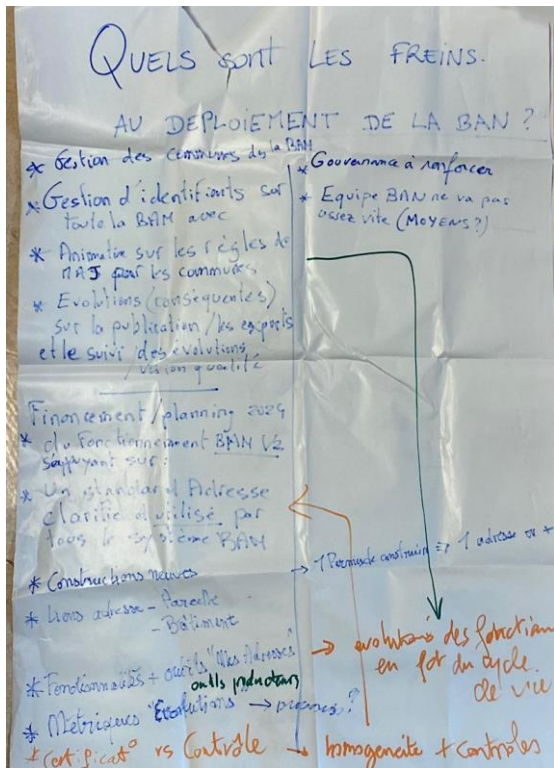 QUELS SONT LES FREINS.
AU DEPLOIEMENT DE LA BAN ?
* Gestion des communes ds la BAN
* Gestion d'identifiants sur
toute la BAN avec
* Animation sur les règles de
MAJ pour les communes
* Evolutions (conséquentes)
sur la publication / les exports
et le suivi des évolutions
/ version qualité
Financement / planning 2024
* du Fonctionnement BAN V2
s'appuyant sur :
* Un standard Adresse
clarifié et utilisé par
tous le système BAN
* Constructions neuves
* Liens adresse - Parcelle
- Bâtiment
* Fonctionnalités + outils "Mes Adresses"
outils producteurs
* Métriques Evolutions →
* Certificat° vs Contrôle → homogeneité + contrôles
* Gouvernance à renforcer
* Equipe BAN ne va pas
assez vite (MOYENS ?)
→ 1 Permis de construire => 1 adresse ou +
→ evolutions des fonctions
en fct du cycle
de vie